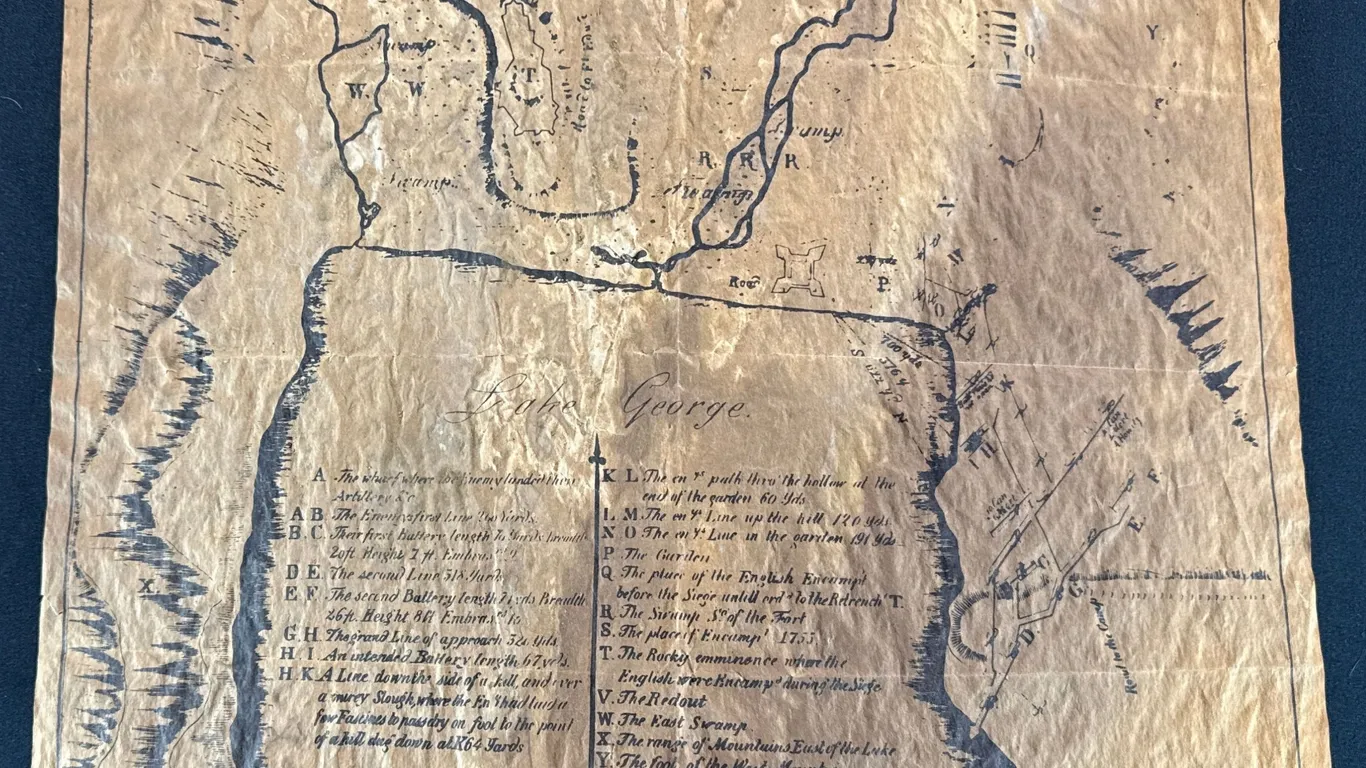 Swamp
W.
W
T
Road to Ft Edwd
S.
Y
Q
Swamp
R
R
R
Swamp.
Swamp
Road
P
Lake George.
A The wharf where the Enemy landed their
Artillery &c
A B The Enemys first Line 200 Yards.
B. C Their first Battery length 70 Yards breadth
20ft Height 7 ft. Embrass
D E The second Line 318 Yards
E F The second Battery length 71 yds Breadth
26ft. Height 8ft Embrass
G. H The grand Line of approach 320 Yds
H. I An intended Battery length 67 yds.
H. K A Line down the side of a hill, and over
a mirey Slough, where the En had laid a
few Fascines to pass dry on foot to the point
of a hill dug down at K 64 Yards
K L The enys path thro' the hollow at the
end of the garden 60 Yds
L M The enys Line up the hill 120 yds
N O The enys Line in the garden 191 Yds
P The Garden
Q The place of the English Encampt
before the Siege untill ordd to the Retrencht T.
R The Swamp So of the Fort
S. The place of Encampt 1755
T. The Rocky emminence where the
English were Encampd during the Siege
V. The Redout
W. The East Swamp
X. The range of Mountains East of the Lake
Y. The foot of the West
X
F
E
G
D
Road to the Camp